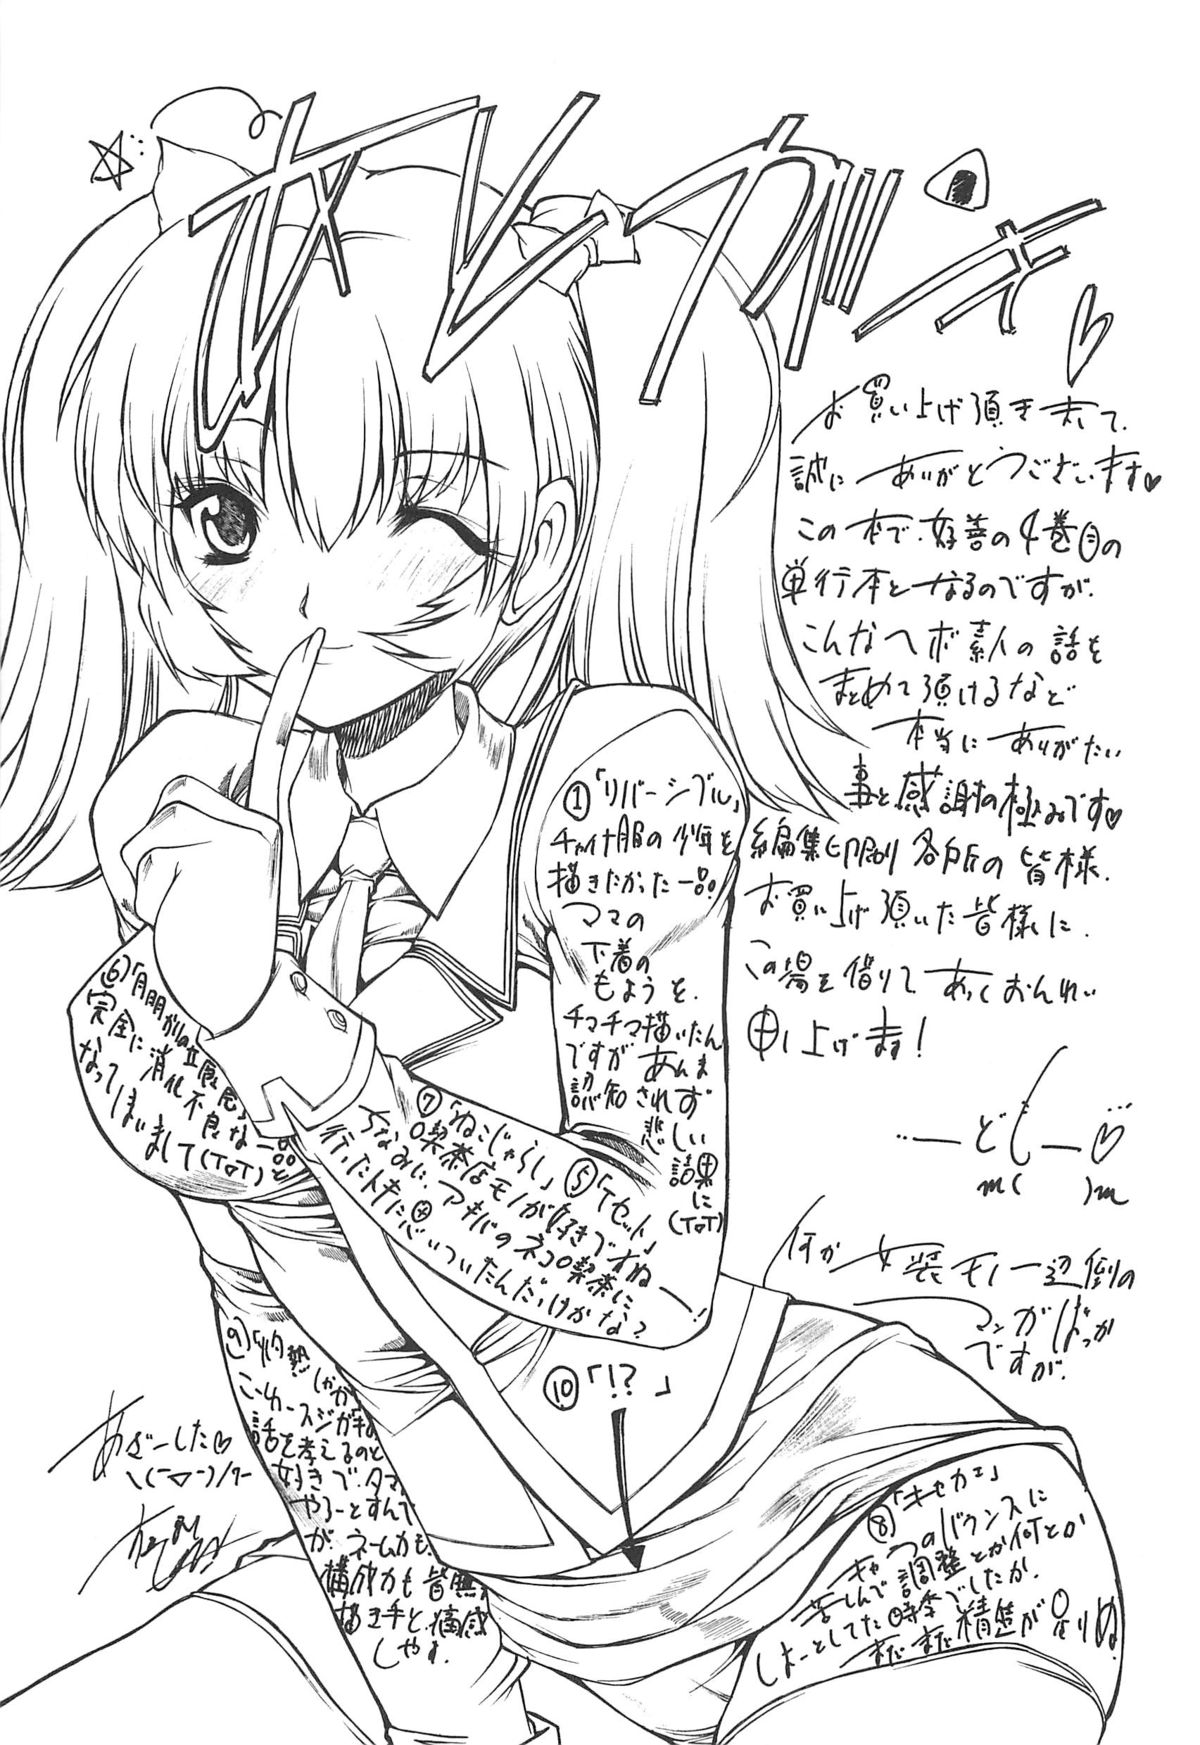 あとがき
お買い上げ頂きまして、
誠にありがとうございます♡
この本で、好善の4巻目の
単行本となるのですが、
こんなヘボ素人の話を
まとめて頂けるなど
本当にありがたい
事と感謝の極みです♡
編集、印刷、各所の皆様、
お買い上げ頂いた皆様に、
この場を借りてあつくおんれい
申し上げます!
…ーどもー♡
m( )m
何か女装モノ一辺倒の
マンガばっか
ですが、
①「リバーシブル」
チャイナ服の少年を
描きたかった一品。
ママの
下着の
もようを、
チマチマ描いたん
ですがあんま
認知されず
悲しい結果に
(ToT)
⑤「Tセット」
⑥「月明かりの
完全に消化不良な一品と
なってしまいまして(ToT)
⑦「ねこじゃらし」
喫茶店モノが好きですねー!
ちなみに、アキバのネコ喫茶に
行ったトキ
⑧「キャカェ」
キャラのバランスに
苦しんで調整とか何とか
しよーとしてた時季でしたか、
まだまだ精進が足りぬ
⑨「灼熱
話を考えるのと
好きで、
やろーとすんで
が、ネームカも、
構成力も皆無
描き手と、痛感
しやす。
⑩「!?」
あざーした♡
\(ー▽ー)/